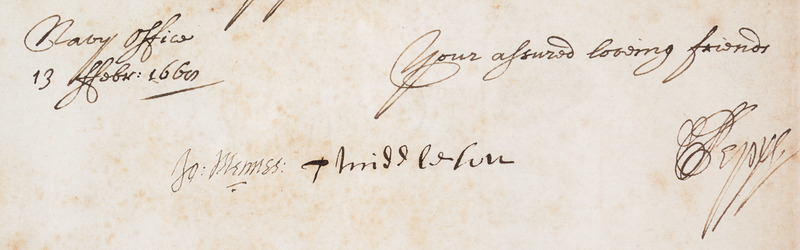 Navy Office
13 ffebr:
Your assured loveing friends
Jo: Mennes: TMiddleton SPepys